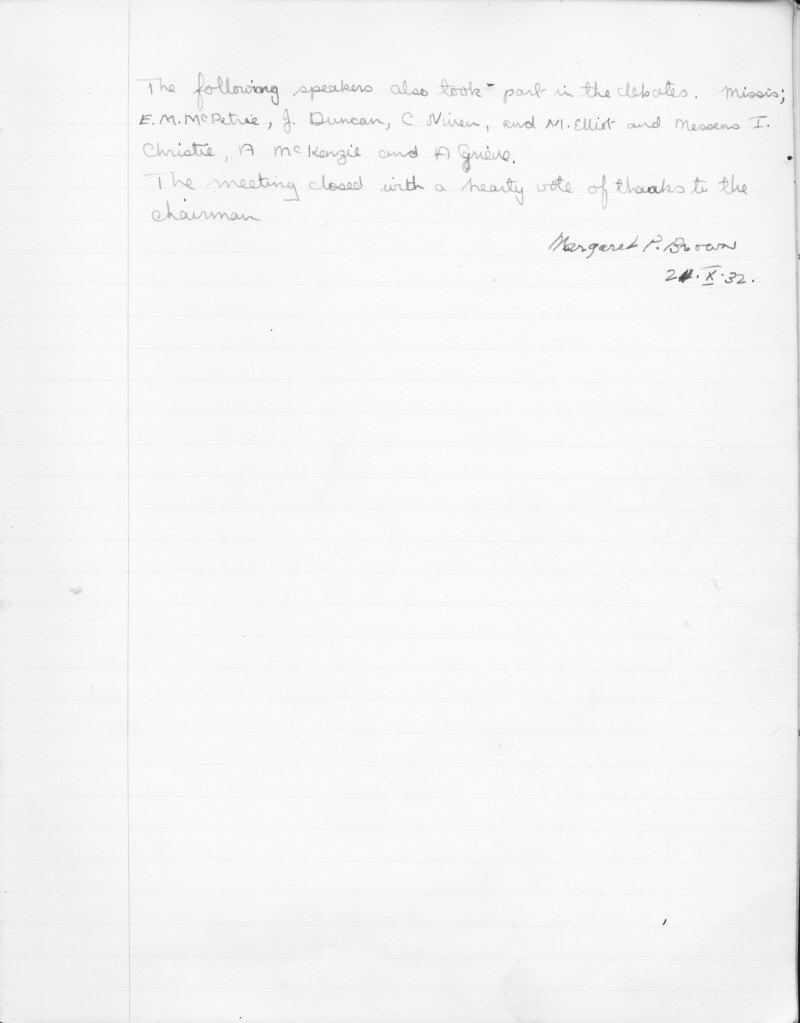 The following speakers also took part in the debates. Missis;
E.M. McPetrie, J. Duncan, C Niven, and M. Elliot and Messers I.
Christie, A McKenzie and A Grieve.
The meeting closed with a hearty vote of thanks to the
chairman
Margaret P. Brown
24.X.32.